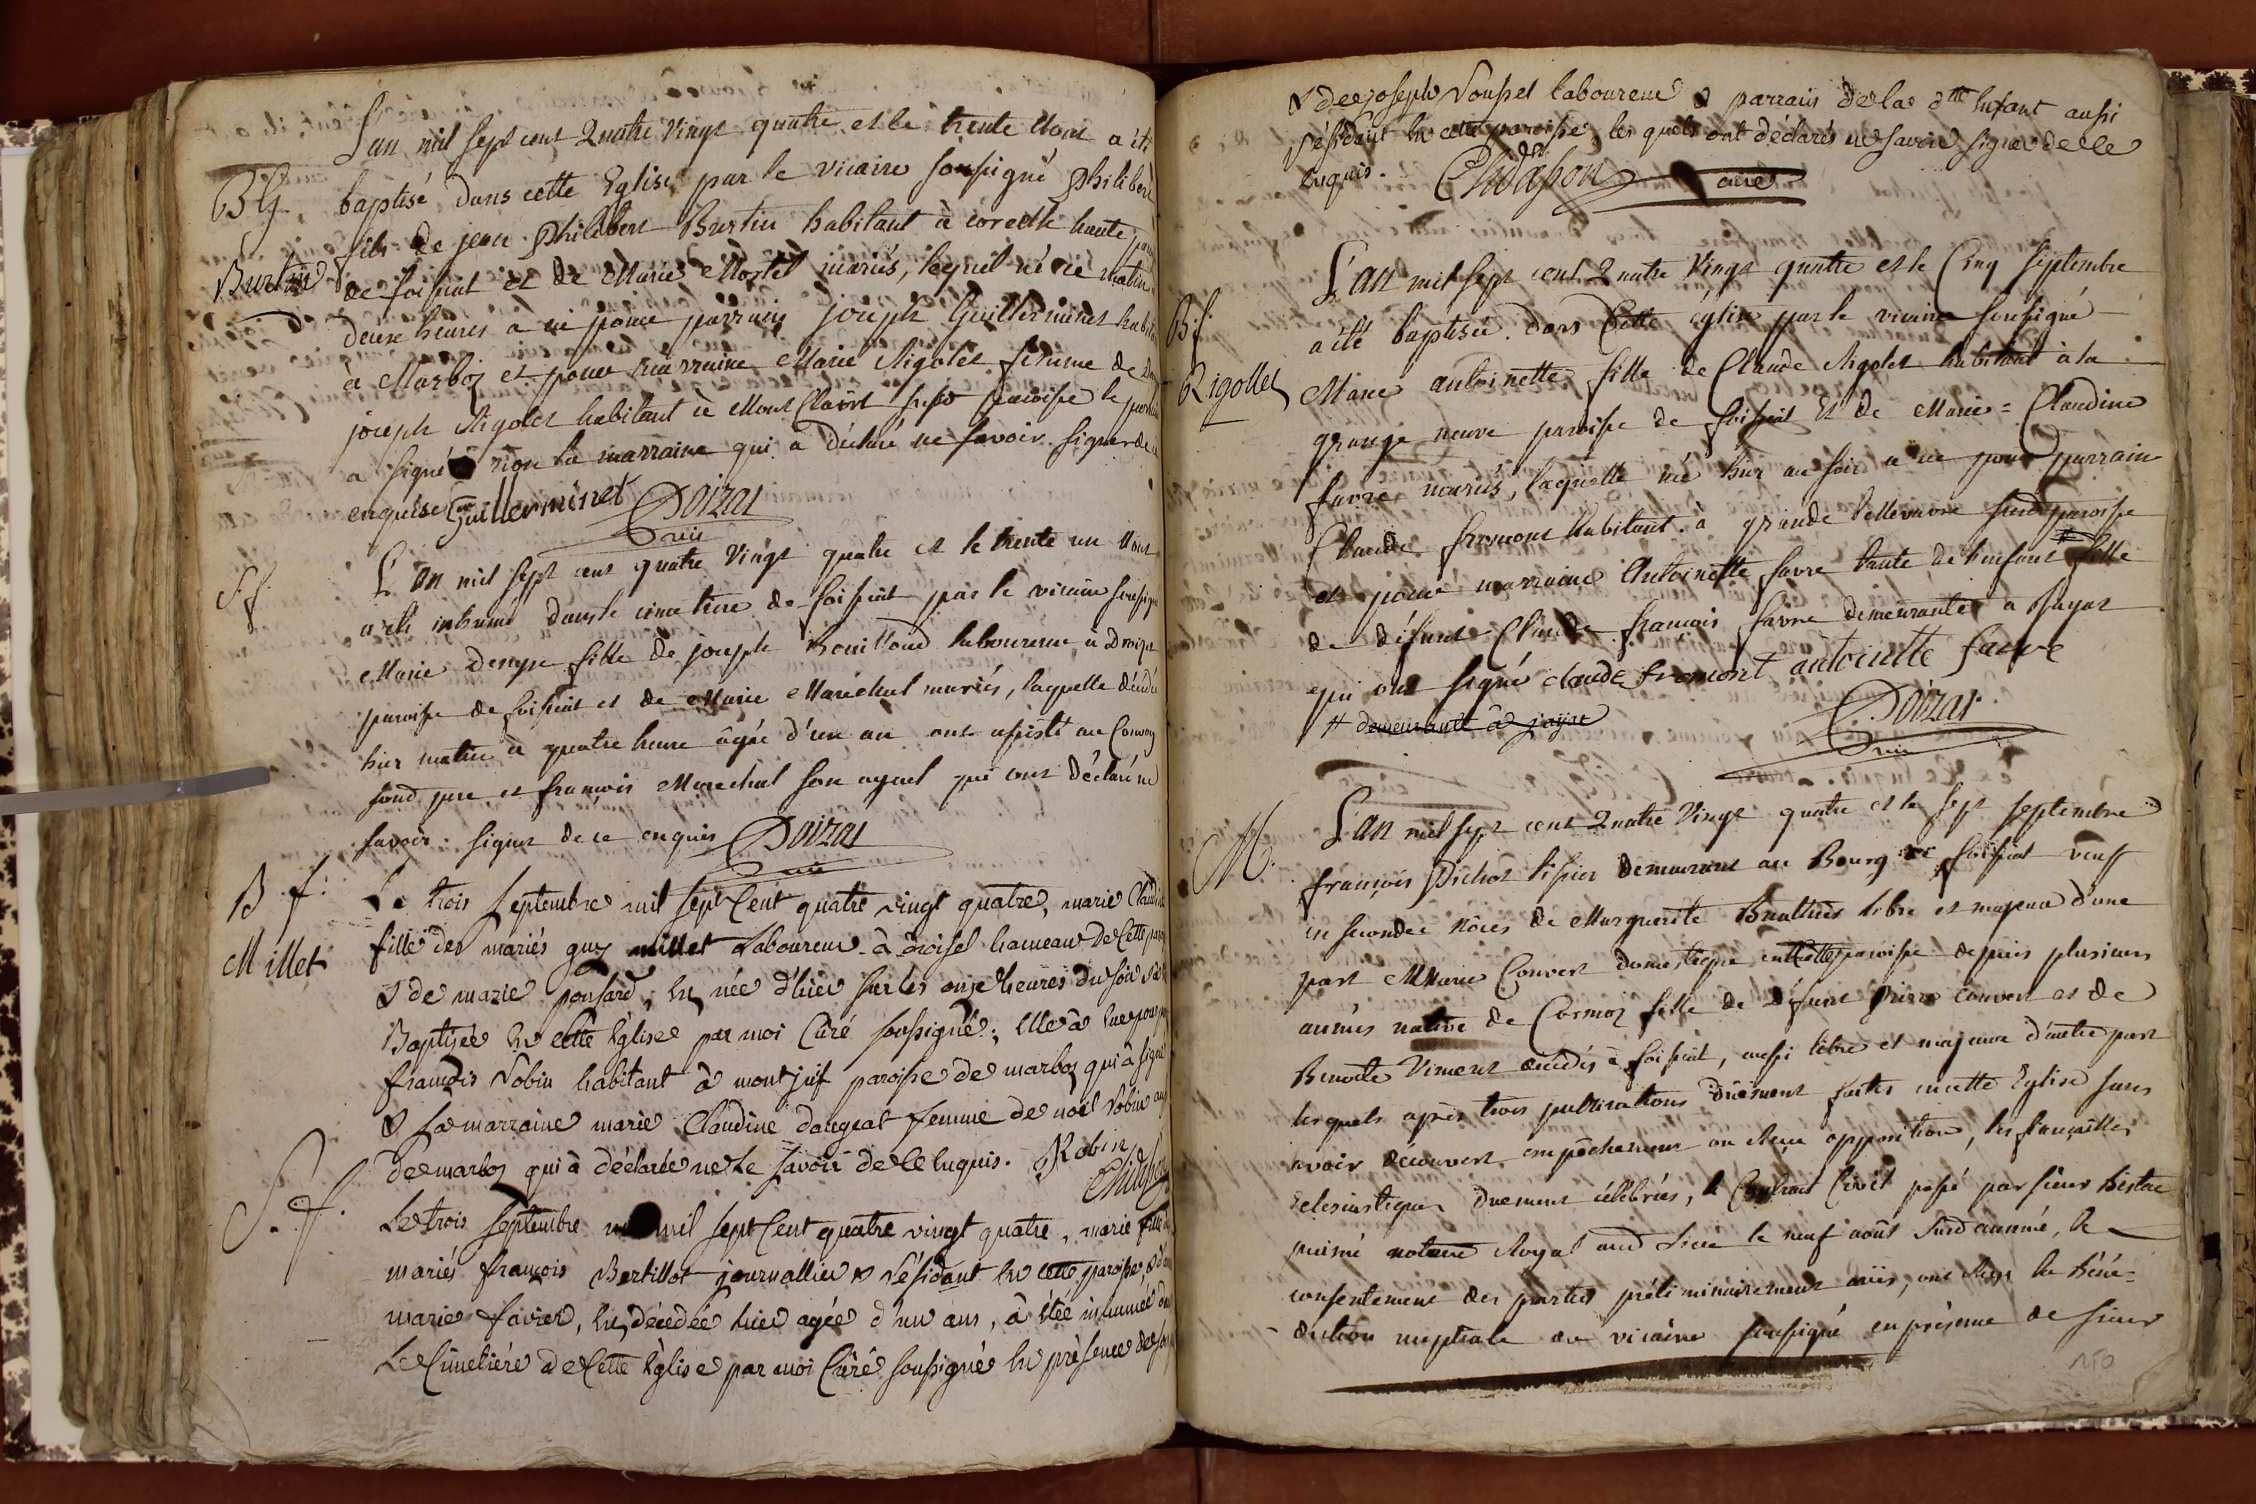 L'an mil sept cent Quatre Vingt quatre et le trente Aout a été
B.G. baptisé dans cette Eglise par le vicaire soussigné Philibert
fils de jean Philibert Burtin habitant à corcelle haute
Burtin de foissiat et de Marie Mortel mariés, lequel né ce matin
deux heures a eu pour parrain joseph Guillerminet
à Marboz et pour marraine Marie Rigolet femme de
joseph Rigolet habitant à Mont Clairt susd paroisse le
a signé non la marraine qui a déclaré ne savoir signer de
enquise Guillerminet Doizat
vire
S.f. L'an mil sept cent quatre Vingt quatre et le trente un Aout
a été inhumé dans le cimetiere de foissiat par le vicaire
Marie denyse fille de joseph Bouilloud laboureur à
paroisse de foissiat et de Marie Marechal mariés, laquelle
hier matin à quatre heure âgée d'un an ont assisté au Convoy
son d. pere et françois Marechal son ayeul qui ont déclaré ne
savoir signer de ce enquis Doizat
vire
B. f. Le trois Septembre mil sept Cent quatre vingt quatre, marie
Millet fille des mariés guy millet Laboureur à hameau de Cette
& de marie ponsard, née d'hier sur les onze heures du soir
Baptisée en Cette Eglise par moi Curé soussigné; Elle a
françois Robin habitant à montjuif paroisse de marboz qui à signé
& sa marraine marie Claudine dangeat femme de noël Robin
de marboz qui à déclarée ne le savoir de ce Enquis. Robin
S. f. Le trois septembre mil sept Cent quatre vingt quatre, marie
mariés françois Bertillot journallier & Résidant En cette paroisse,
marie favier, décédée hier agée d'un ans, à étée inhumée
Le Cimetiére de Cette Eglise par moi Curé soussigné En présence
& de joseph Rousset laboureur & parrain de la d.tte Enfant aussi
Résidant En cette paroisse, les quels ont déclarés ne savoir signer de Ce
Enquis. Chidason
curé
L'an mil sept cent Quatre Vingt quatre et le Cinq septembre
B.f. a été baptisée dans Cette eglise par le vicaire soussigné
Rigollet Marie antoinette fille de Claude Rigolet habitant à la
grange neuve paroisse de foissiat Et de Marie = Claudine
favre mariés, laquelle né hier au soir a eu pour parrain
Claude fromont habitant à grande Vellevavre susd paroisse
et pour marraine Antoinette favre tante de l'enfant # fille
de défunt Claude françois favre demeurante a Jayat
qui ont signé claude fromont antoinette favre
# demeurante à jayat Doizat
vire
M. L'an mil sept cent Quatre Vingt quatre et le sept septembre
françois Pichot tissier demeurant au Bourg de foissiat veuf
en secondes nôces de Marguerite libre et majeur d'une
part Marie Convert domestique en Cette paroisse depuis plusieurs
années native de Cormoz fille de défunt Pierre convert et de
Benoite Viment décédés à foissiat, aussi libre et majeure d'autre part
lesquels après trois publications duement faites en cette Eglise sans
avoir découvert empêchement ou reçu opposition, les fiançailles
Eclesiastiques duement célébrées, le Contrat Civil passé par sieur
puiné notaire Royal aud Lieu le neuf août susd année, le
consentement des parties préliminairement ouïs, ont reçu la béné=
diction nuptiale du vicaire soussigné en présence de sieur
150